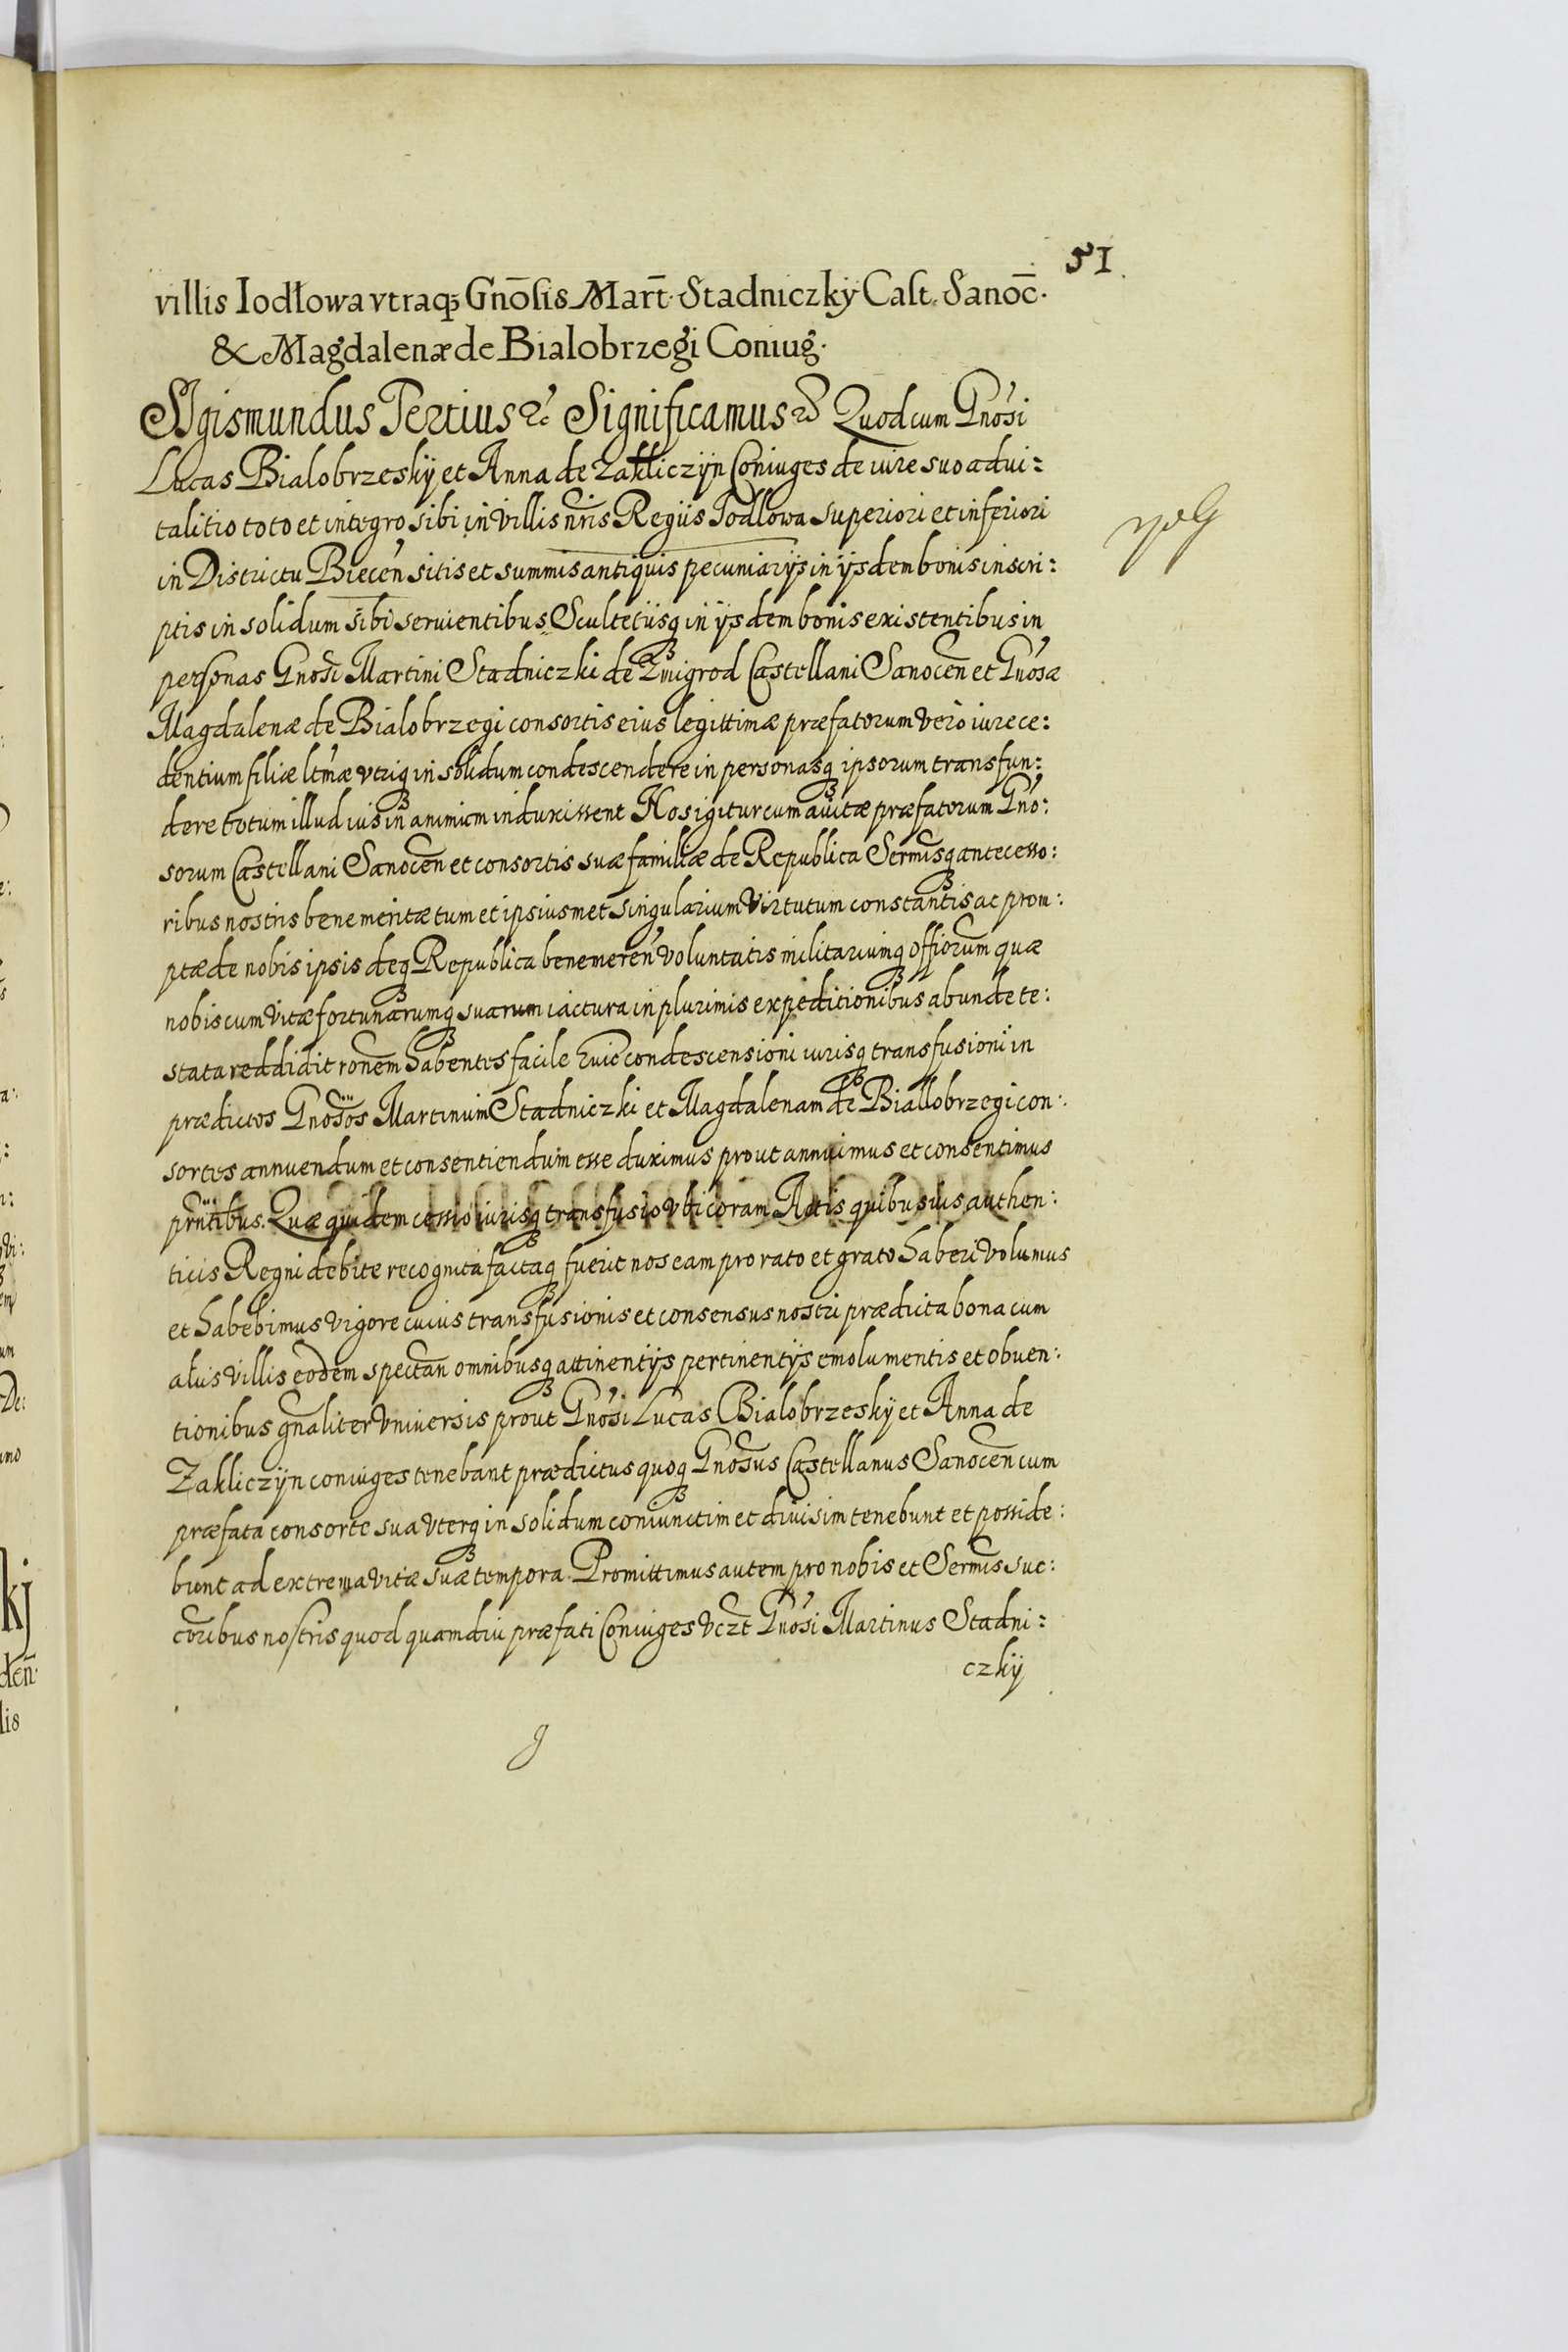 51.
villis Iodłowa vtraq₃ Gnōsis Mart̄. Stadniczkÿ Cast. Sanoc̄.
& Magdalenæ de Bialobrzegi Coniug.
SIgismundus Tertius &c Significamus &c Quod cum Gnosi
Lucas Bialobrzeskÿ et Anna de Zakliczÿn Coniuges de iure suo advi:
talitio toto et integro sibi in villis nris Regiis Jodlowa superiori et inferiori
in Districtu Biecen sitis et summis antiquis pecuniarÿs in ÿsdem bonis inscri:
ptis in solidum sibi seruientibus Scultetiisq in ÿsdem bonis existentibus in
personas Gnosi Martini Stadniczki de Zmigrod Castellani Sanocen et Gnosæ
Magdalenæ de Bialobrzegi consortis eius legittimæ præfatorum vero iure ce:
dentium filiæ ltmæ vtriq in solidum condescendere in personasq ipsorum transfun:
dere totum illud ius in animum induxissent Nos igitur cum avitæ præfatorum Gno:
sorum Castellani Sanocen et consortis suæ familiæ de Republica Sermisq antecesso:
ribus nostris benemeritæ tum et ipsiusmet singularium virtutum constantis ac prom:
ptæ de nobis ipsis deq Republica benemeren voluntatis militariumq offiorum quæ
nobis cum vitæ fortunarumq suarum iactura in plurimis expeditionibus abunde te:
stata reddidit ronem habentes facile huic condescensioni iurisq transfusioni in
prædictos Gnosos Martinum Stadniczki et Magdalenam de Biallobrzegi con:
sortes annuendum et consentiendum esse duximus prout annuimus et consentimus
prntibus. Quæ quidem cessio iurisq transfusio vbi coram Actis quibusuis authen:
ticis Regni debite recognita factaq fuerit nos eam pro rato et grato haberi volumus
et habebimus vigore cuius transfusionis et consensus nostri prædicta bona cum
aliis villis eodem spectan omnibusq attinentÿs pertinentÿs emolumentis et obuen:
tionibus gnaliter vniuersis prout Gnosi Lucas Bialobrzeskÿ et Anna de
Zakliczÿn coniuges tenebant prædictus quoq Gnosus Castellanus Sanocen cum
præfata consorte sua vterq in solidum coniunctim et diuisim tenebunt et posside:
bunt ad extrema vitæ suæ tempora. Promittimus autem pro nobis et Sermis suc:
coribus nostris quod quamdiu præfati Coniuges vczt Gnosi Martinus Stadni:
czkÿ
g